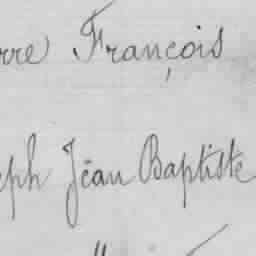 rre François
eph Jean Baptiste